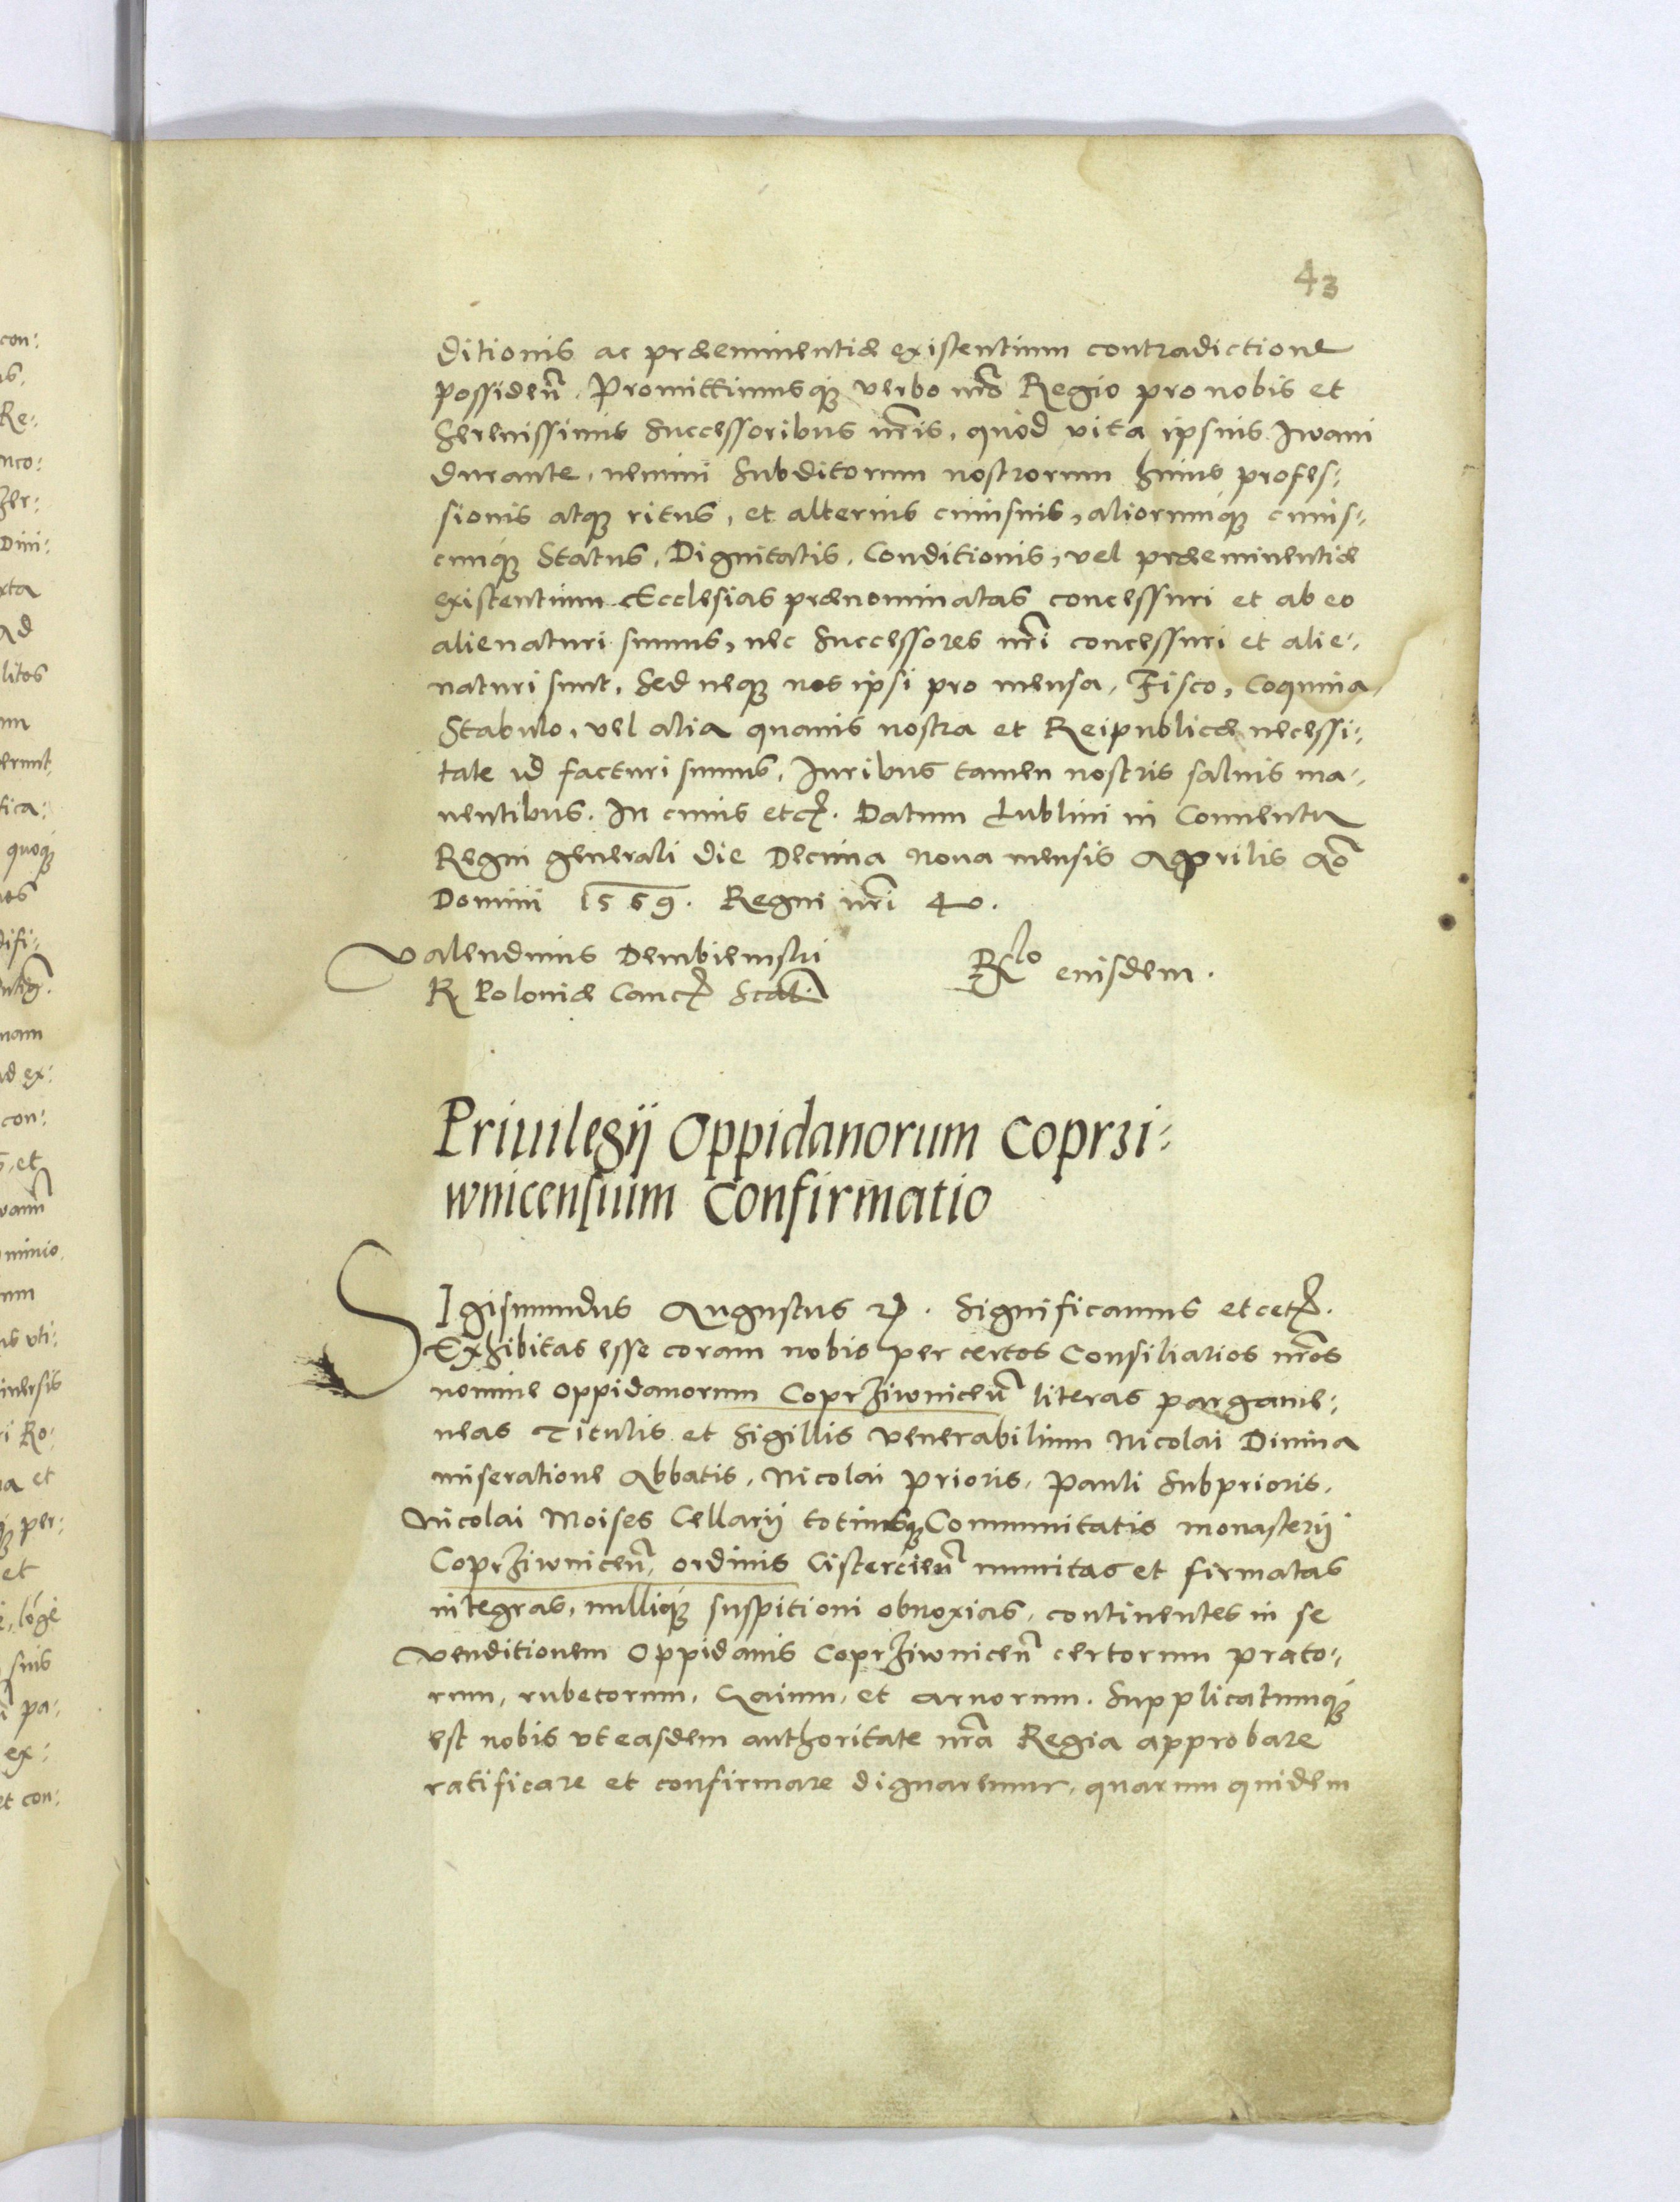 43
ditionis ac præeminentiæ existentium contradictione
possiden̄. Promittimusq́ꝫ verbo nr̄o Regio pro nobis et
Serenissimis Successoribus nr̄is, quòd vita ipsius Iwani
durante, nemini Subditorum nostrorum huius profes:
sionis atqꝫ ritus, et alterius cuiusuis, aliorumq́ꝫ cuius:
cunq́ꝫ Status, Dignitatis, Conditionis, vel præeminentiæ
existentium Ecclesias prænominatas concessuri et ab eo
alienaturi sumus, nec Successores nr̄i concessuri et alie:
naturi sunt, Sed neqꝫ nos ipsi pro mensa, Fisco, Coquina,
Stabulo, vel alia quauis nostra et Reipublicæ necessi:
tate id facturi sumus, Iuribus tamen nostris saluis ma:
nentibus. In cuius etc. Datum Lublini in Conuentu
Regni generali die Decima nona mensis Aprilis Aō
Domini 1569. Regni nr̄i 40.
Valendinus Dembienski
R. Poloniæ Canc. Scał̄
Rlo eiusdem.
Priuilegij Oppidanorum Coprzi:
wnicensium Confirmatio
SIgismundus Augustus etc. Significamus etcet.
Exhibitas esse coram nobis per certos Consiliarios nr̄os
nomine oppidanorum Coprziwnicen̄ literas pargame:
neas Titulis et Sigillis Venerabilium Nicolai Diuina
miseratione Abbatis, Nicolai Prioris, Pauli Subprioris,
Nicolai Moises Cellarij totiusqꝫ Communitatis monasterij
Coprziwnicen̄, ordinis Cistercien̄ munitas et firmatas
integras, nulliq́ꝫ suspitioni obnoxias, continentes in se
Venditionem Oppidanis Coprziwnicen̄ certorum prato:
rum, rubetorum, Gaium, et aruorum. Supplicatumq́ꝫ
est nobis vt easdem authoritate nr̄a Regia approbare
ratificare et confirmare dignaremur, quarum quidem